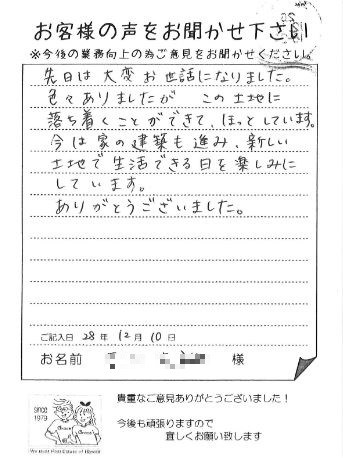 お客様の声をお聞かせ下さい
※今後の業務向上の為ご意見をお聞かせください。
先日は大変お世話になりました。
色々ありましたが この土地に
落ち着くことができて、ほっとしています。
今は家の建築も進み、新しい
土地で生活できる日を楽しみに
しています。
ありがとうございました。
ご記入日 28年 12月 10日
お名前 様
since
1979
貴重なご意見ありがとうございました！
今後も頑張りますので
宜しくお願い致します